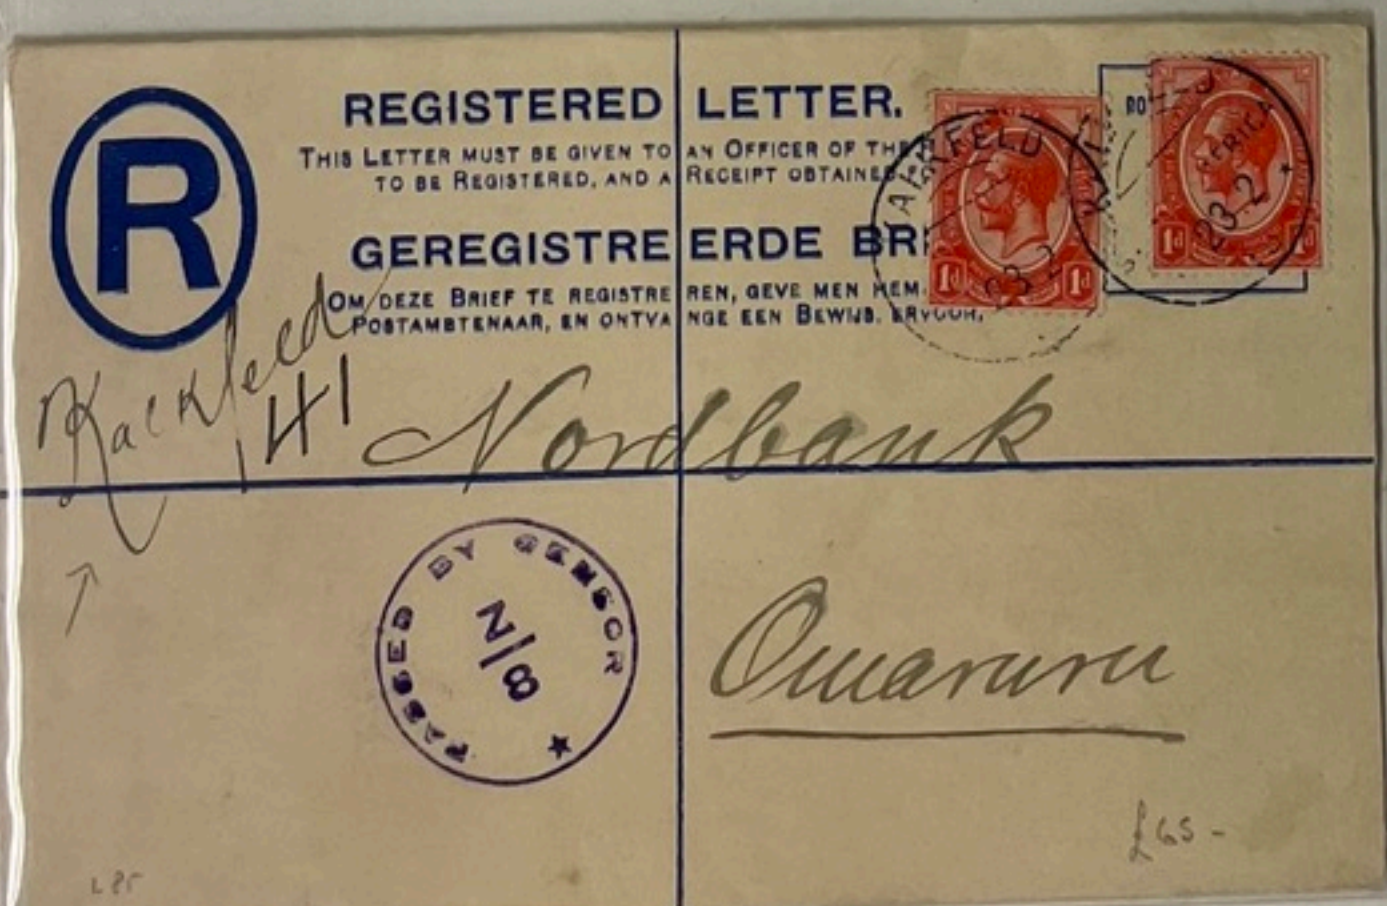 R
REGISTERED LETTER.
THIS LETTER MUST BE GIVEN TO AN OFFICER OF THE
TO BE REGISTERED, AND A RECEIPT OBTAINED
GEREGISTREERDE BRI
OM DEZE BRIEF TE REGISTREREN, GEVE MEN HEM
POSTAMBTENAAR, EN ONTVANGE EEN BEWIJS. ERVOOR.
1d 1d
KALKFELD
23.2
1d
AFRICA
23.2
R Kalkfeld
141
Nordbank
PASSED BY CENSOR
N/8
Omaruru
£65-